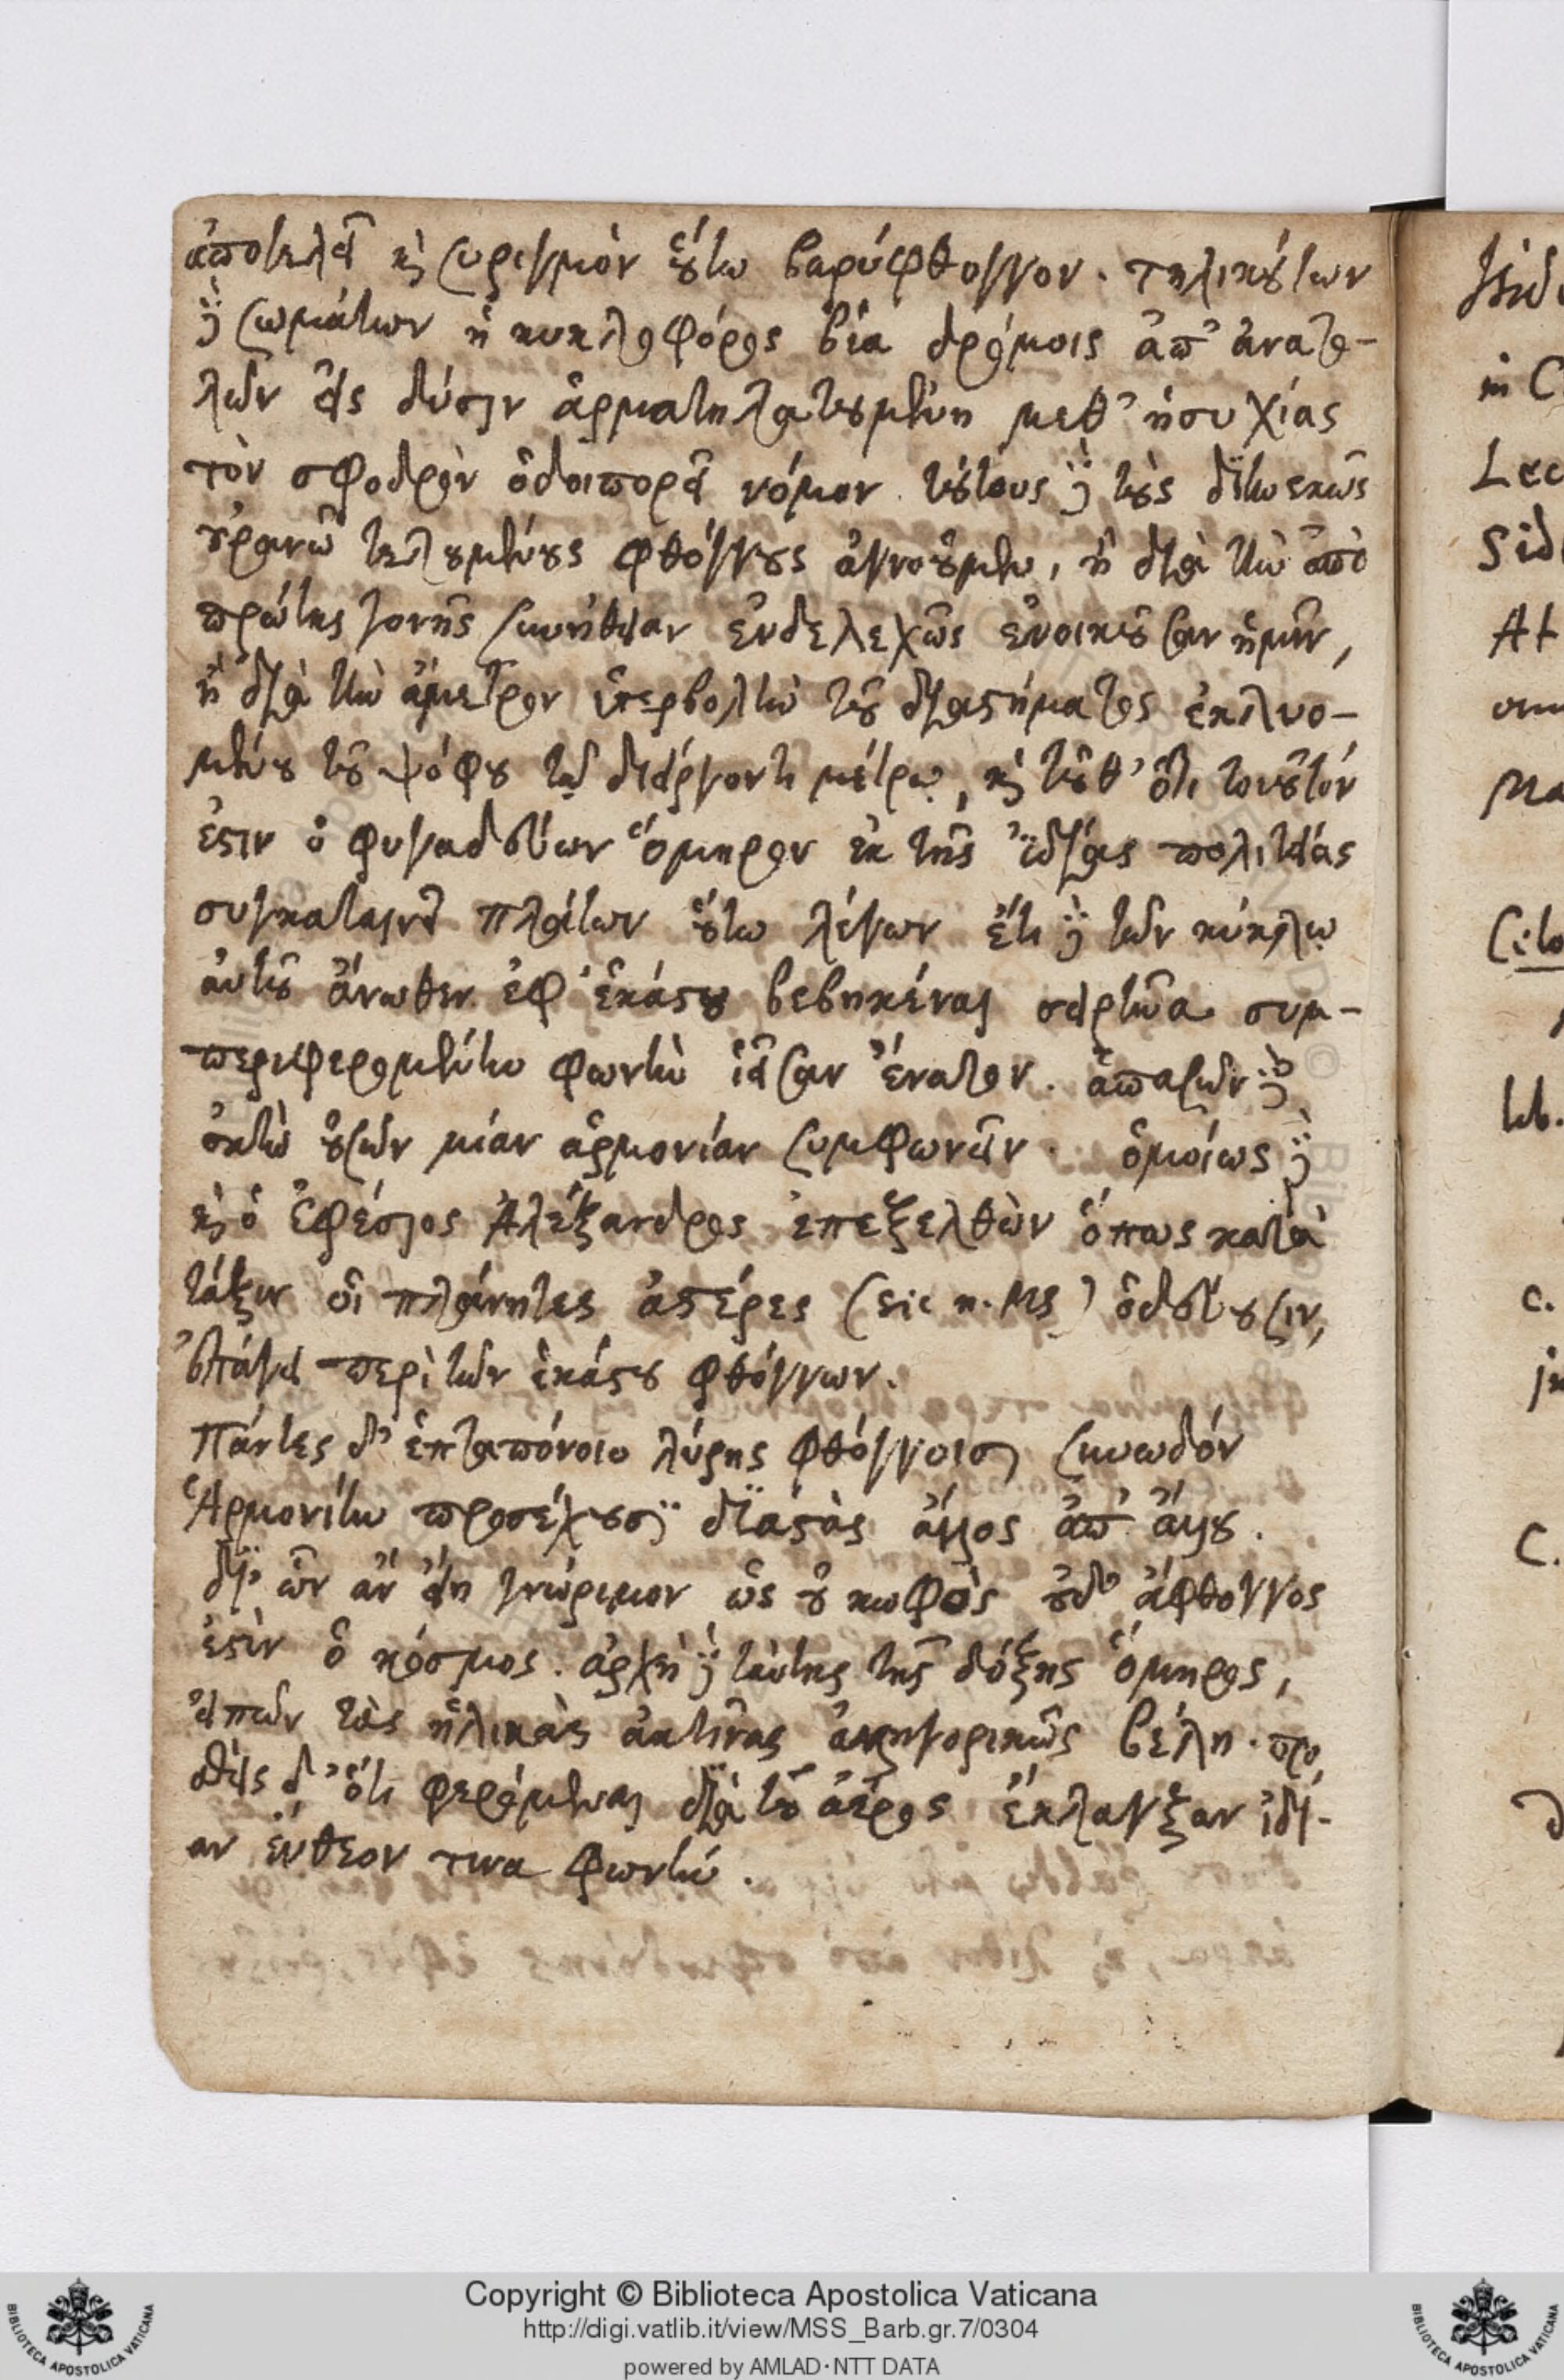 ἀποτελεῖ καὶ συριγμὸν οὕτω βαρύφθογγον. τηλικούτων
δὲ σωμάτων ἡ κυκλοφόρος βία δρόμοις ἀπ' ἀνατο-
λῶν εἰς δύσιν ἁρματηλατουμένη μεθ' ἡσυχίας
τὸν σφοδρὸν ὁδοιπορεῖ νόμον. τούτους δὲ τοὺς διηνεκῶς
οὐρανῶ τελουμένους φθόγγους ἀγνοοῦμεν, ἢ διὰ τὴν ἀπὸ
πρώτης γονῆς συνήθειαν ἐνδελεχῶς ἐνοικοῦσαν ἡμῖν,
ἢ διὰ τὴν ἄμετρον ὑπερβολὴν τοῦ διαστήματος ἐκλυο-
μένου τοῦ ψόφου τῷ διείργοντι μέτρῳ, καὶ τοῦθ' ὅτι τοιοῦτόν
ἐστιν ὁ φυγαδεύων Ὅμηρον ἐκ τῆς ἰδίας πολιτείας
συγκαταινεῖ Πλάτων οὕτω λέγων ἔτι δὲ τῶν κύκλῳ
αὐτοῦ ἄνωθεν ἐφ' ἑκάστου βεβηκέναι σειρῆνα συμ-
περιφερομένην φωνὴν ἱεῖσαν ἕνα τον. ἁπασῶν δὲ
ὀκτὼ οὐσῶν μίαν ἁρμονίαν συμφωνεῖν. ὁμοίως δὲ
καὶ ὁ Ἐφέσιος Ἀλέξανδρος ἐπεξελθὼν ὅπως κατὰ
τάξιν οἱ πλάνητες ἀστέρες (sic n. Ms) ὁδεύουσιν,
ἐπάγει περὶ τῶν ἑκάστου φθόγγων.
Πάντες δ' ἑπταπόνοιο λύρης φθόγγοισι συνωδόν
Ἁρμονίην προσέχουσι διαστὰς ἄλλος ἀπ' ἄλλου.
δι' ὧν ἂν εἴη γνώριμον ὡς οὐ κωφὸς οὐδ' ἄφθογγος
ἐστὶν ὁ κόσμος. ἀρχὴ δὲ ταύτης τῆς δόξης Ὅμηρος,
εἰπὼν τὰς ἡλικὰς ἀκτῖνας ἀλληγορικῶς βέλη. προ
σθεὶς δ' ὅτι φερόμεναι διὰ τοῦ ἀέρος ἔκλαγξαν ἰδί-
αν ἔνθεον τινα φωνήν.
in C
Lec
Sid
At
Ma
lib.
c.
C.
Copyright © Biblioteca Apostolica Vaticana
http://digi.vatlib.it/view/MSS_Barb.gr.7/0304
powered by AMLAD·NTT DATA
BIBLIOTECA APOSTOLICA VATICANA
BIBLIOTECA APOSTOLICA VATICANA